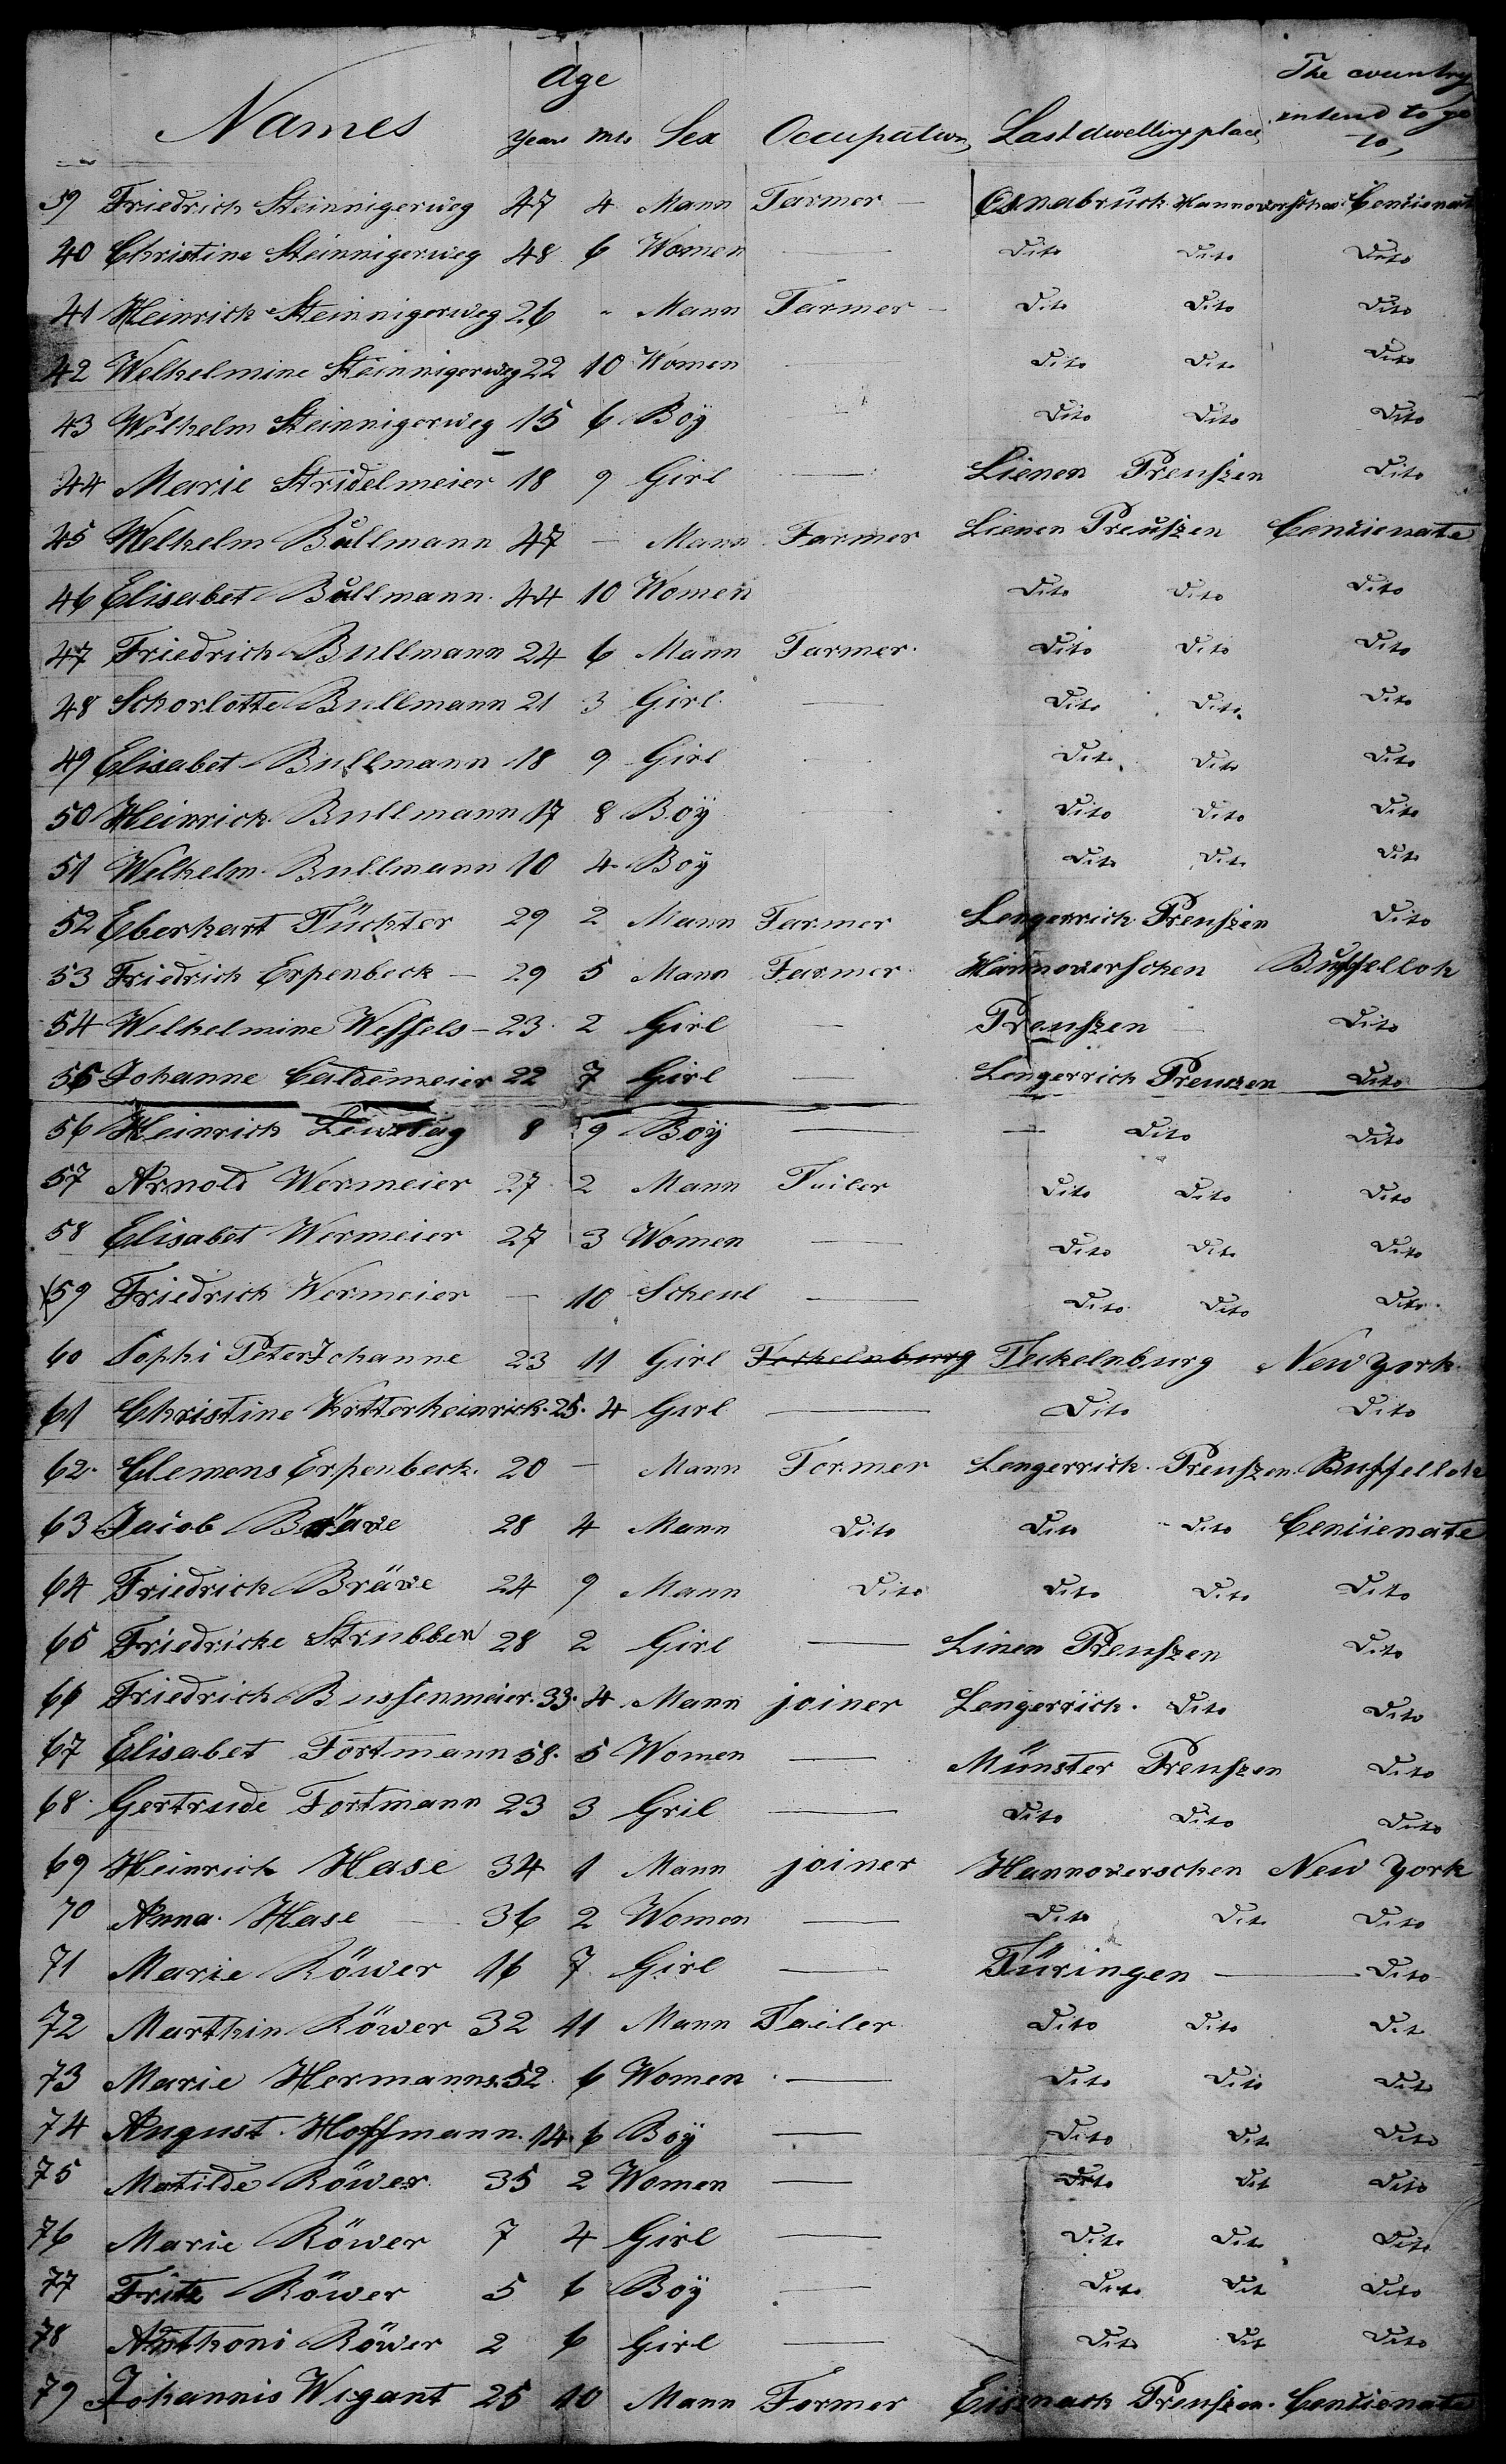 Names Age Years Mts Sex Occupation Last dwelling place The country intend to go to,
39 Friedrich Steinnigerweg 47 4 Mann Farmer — Osnabrück Hannoverschen Concienate
40 Christine Steinnigerweg 48 6 Women — Dito Dito Dito
41 Heinrich Steinnigerweg 26 " Mann Farmer — Dito Dito Dito
42 Welhelmine Steinnigerweg 22 10 Women — Dito Dito Dito
43 Welhelm Steinnigerweg 15 6 Boÿ — Dito Dito Dito
44 Marie Stridelmeier 18 9 Girl — Lienen Preuſzen Dito
45 Welhelm Bullmann 47 — Mann Farmer Lienen Preuſzen Cencienate
46 Elisabet Bullmann. 44 10 Women Dito Dito Dito
47 Friedrich Bullmann 24 6 Mann Farmer. Dito Dito Dito
48 Schorlotte Bullmann 21 3 Girl. — Dito Dito Dito
49 Elisabet Bullmann 18 9 Girl Dito Dito Dito
50 Heinrich Bullmann 17 8 Boÿ Dito Dito Dito
51 Welhelm Bullmann 10 4 Boÿ Dito Dito Dito
52 Eberhart Füchter 29 2 Mann Farmer Lengerrich Preuſzen Dito
53 Friedrich Erpenbeck — 29 5 Mann Farmer. Hannoverschen Buffelloh
54 Welhelmine Weſsels — 23 2 Girl — Preuſzen — Dito
55 Johanne Caldemeier 22 7 Girl — Lengerrich Preuszen Dito
56 Heinrich 8 9 Boÿ — — Dito Dito
57 Arnold Wermeier 27 2 Mann Tailer Dito Dito Dito
58 Elisabet Wermeier 27 3 Women — Dito Dito Dito
59 Friedrich Wermeier — 10 — Dito Dito Dito
60 Sophi Peter Johanne 23 11 Girl Teckelnburg Teckelnburg New York
61 Christine 25. 4 Girl — Dito Dito
62. Clemens Erpenbeck. 20 — Mann Former Lengerrich. Preuſzen Buffelloh
63 Jacob Bräve 28 4 Mann Dito Dito Dito Cencienate
64 Friedrich Bräve 24 9 Mann Dito Dito Dito Dito
65 Friedricke Strubben 28 2 Girl — Linen Preuſzen Dito
66 Friedrich Bussenmeier. 33. 4 Mann joiner Lengerrich. Dito Dito
67 Elisabet Fortmann 58. 5 Women — Münster Preuſzen Dito
68. Gertrude Fortmann 23 3 Gril — Dito Dito Dito
69 Heinrich Hase 34 1 Mann joiner Hannoverschen New York
70 Anna. Hase — 36 2 Women — Dito Dito Dito
71 Marie Röwer 16 7 Girl — Türingen — Dito
72 Marthin Röwer 32 11 Mann Tailer. Dito Dito Dit
73 Marie Hermanns. 52 6 Women — Dito Dito Dito
74 August. Hoffmann. 14 6 Boÿ — Dito Dit Dito
75 Matilde Röwer 35 2 Women — Dito Dit Dito
76 Marie Röwer 7 4 Girl — Dito Dito Dito
77 Fritz Röwer 5 6 Boÿ — Dito Dit Dito
78 Anthoni Röwer 2 6 Girl — Dito Dit Dito
79 Johannis Wigant 25 10 Mann Former Eisenach Preuſzen. Cencienate